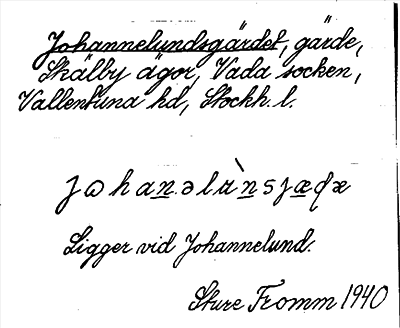 Johannelundsgärdet, gärde,
Skälby ägor, Vada socken,
Vallentuna hd, Stockh. l.
Ligger vid Johannelund.
Sture Fromm 1940